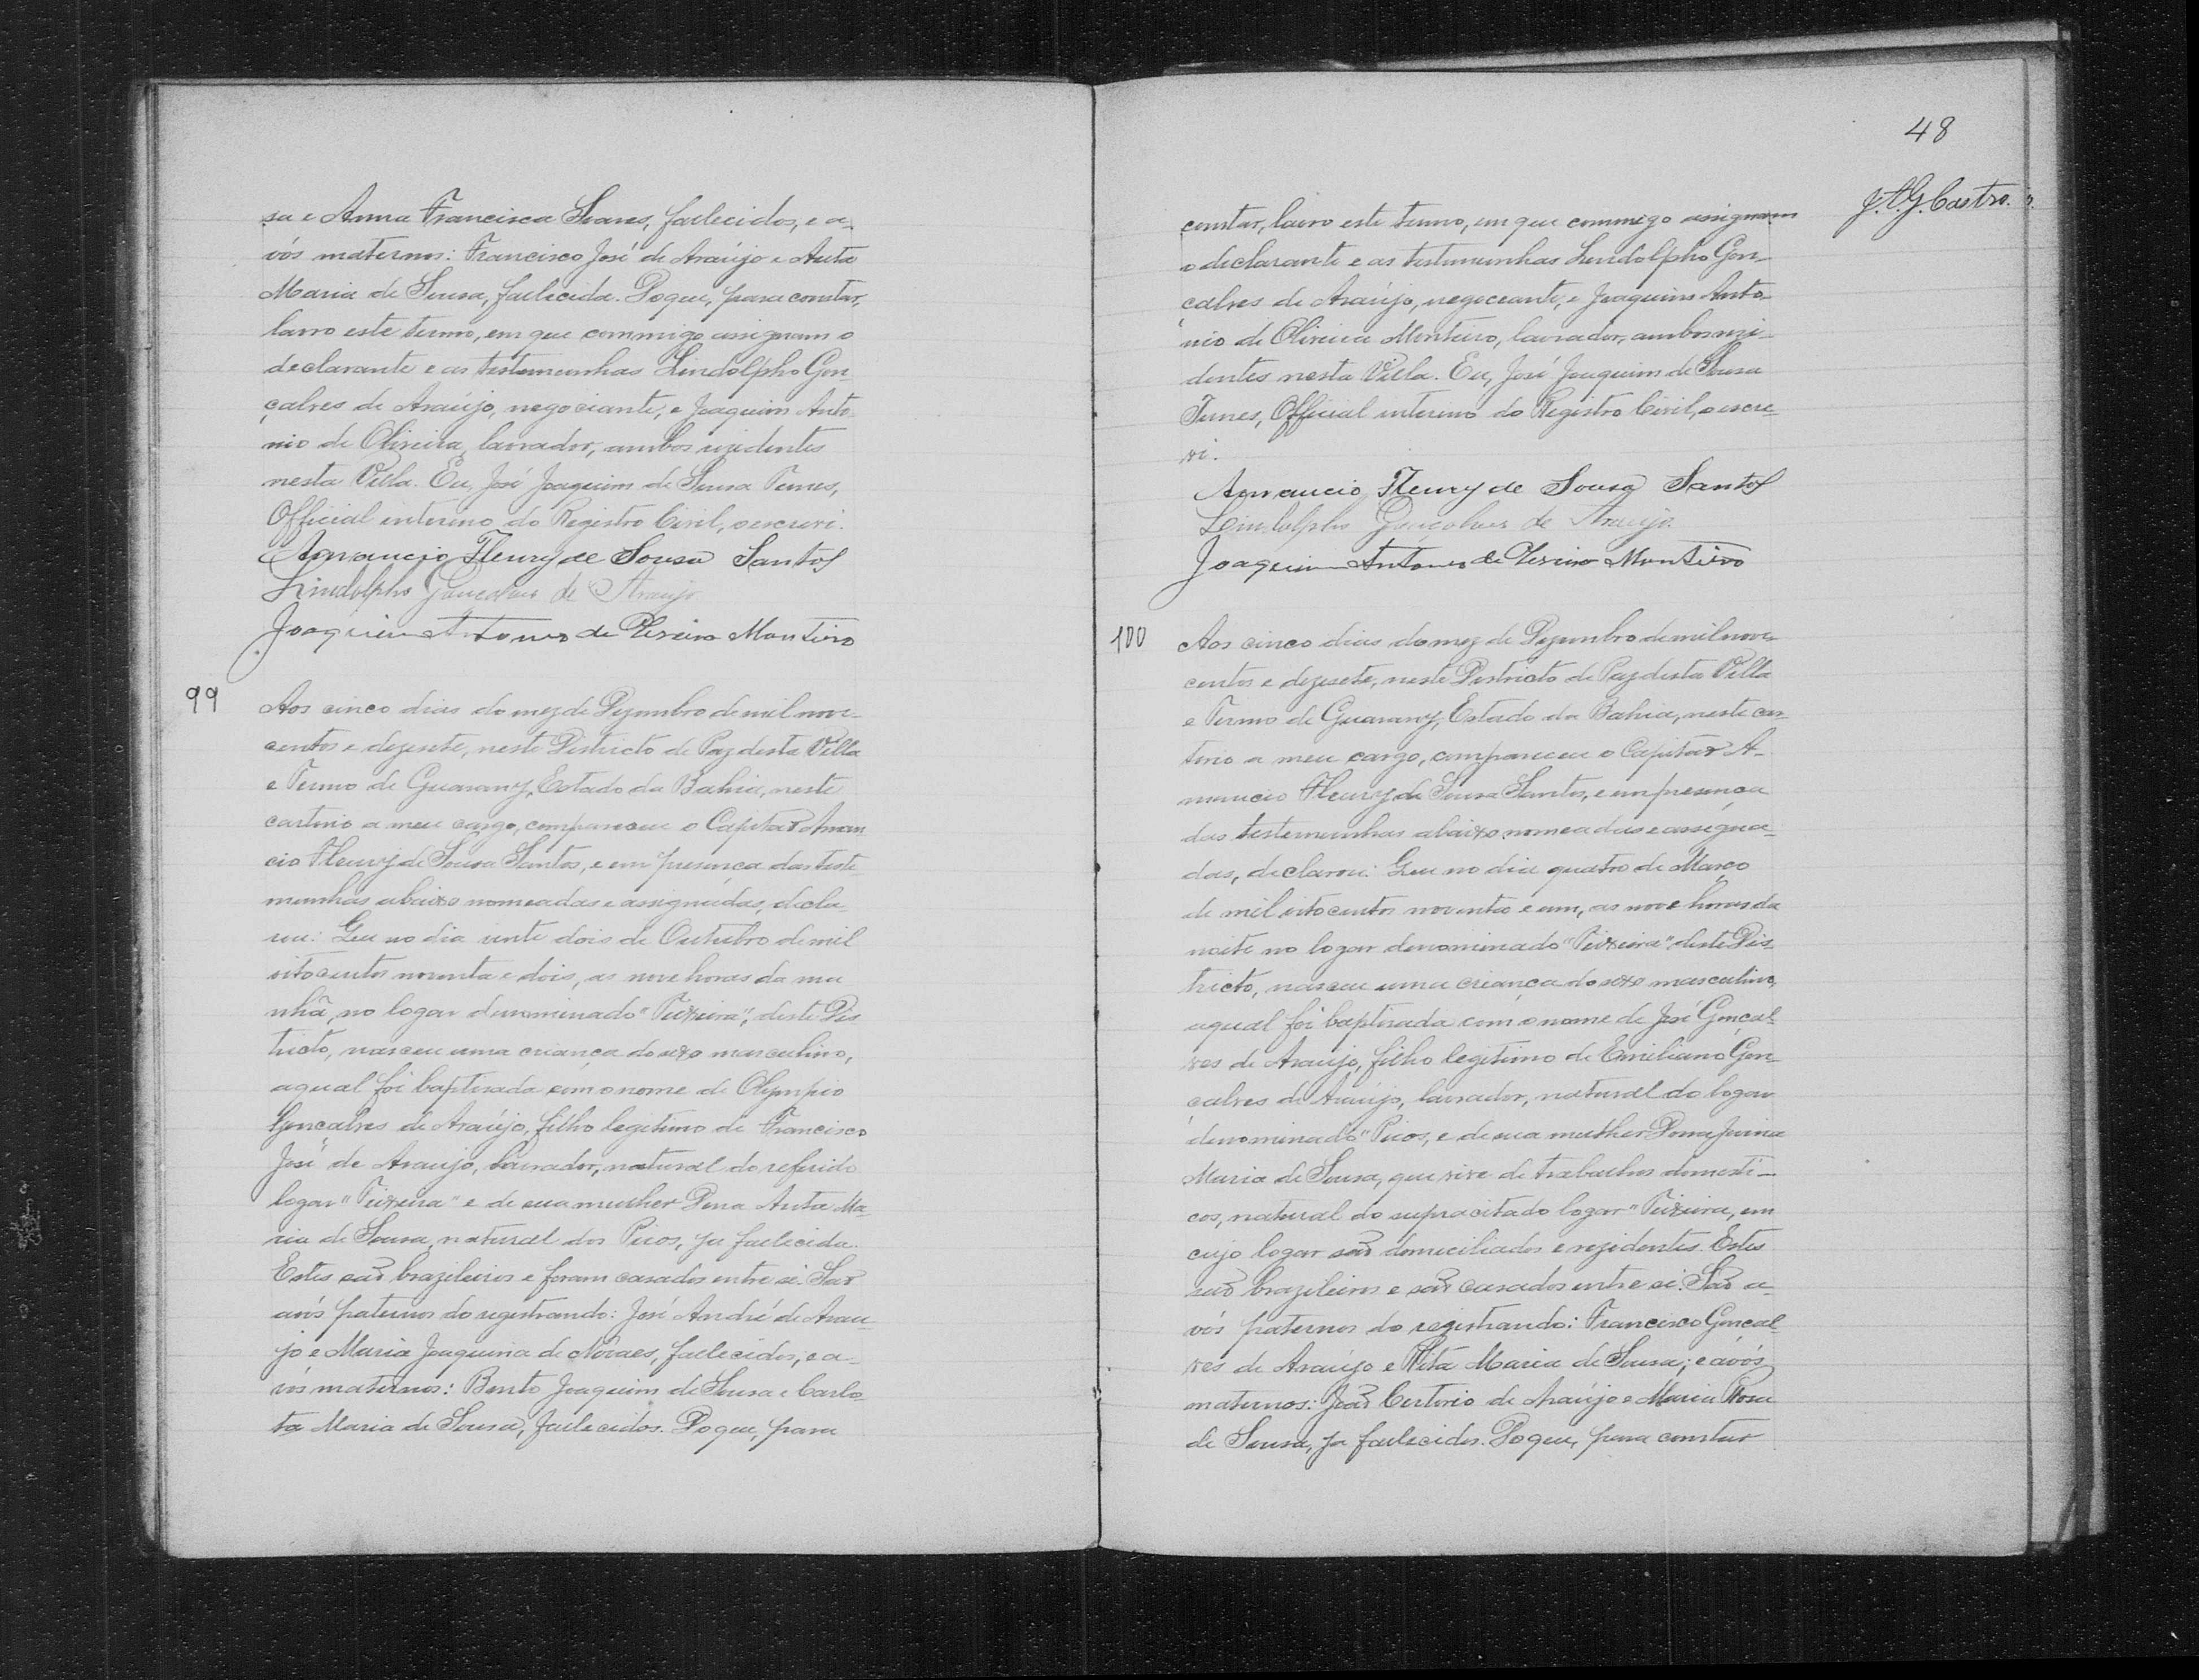 sa e Anna Francisca Soares, fallecidos, e a-
vós maternos: Francisco José de Araújo e Auta
Maria de Sousa, fallecida. Do que, para constar,
lavro este termo, em que commigo assignam o
declarante e as testemunhas Lindolpho Gon-
çalves de Araújo, negociante, e Joaquim Anto-
nio de Oliveira, lavrador, ambos rezidentes
nesta Villa. Eu, José Joaquim de Sousa Tunes,
Official interino do Registro Civil, o escrevi.
Amancio Fleury de Sousa Santos
Lindolpho Gonçalves de Araujo
Joaquim Antonio de Oliveira Monteiro
99
Aos cinco dias do mez de Dezembro de mil nove-
centos e dezesete, neste Districto de Paz desta Villa
e Termo de Guarany, Estado da Bahia, neste
cartorio a meu cargo, compareceu o Capitão Aman
cio Fleury de Sousa Santos, e em presença das teste
munhas abaixo nomeadas e assignadas, decla-
rou: Que no dia vinte dois de Outubro de mil
oitocentos noventa e dois, as nove horas da ma
nhã, no logar denominado "Teixeira", deste Dis
tricto, nasceu uma criança do sexo masculino,
a qual foi baptisada com o nome de Olympio
Gonçalves de Araújo, filho legitimo de Francisco
José de Araujo, lavrador, natural do referido
logar "Teixeira" e de sua mulher Dona Auta Ma-
ria de Sousa, natural dos Picos, ja fallecida.
Estes são brazileiros e foram casados entre si. São
avós paternos do registrando: José André de Arau-
jo e Maria Joaquina de Novaes, fallecidos; e a-
vós maternos: Bento Joaquim de Sousa e Carlo-
ta Maria de Sousa, fallecidos. Do que, para
48
J. A. G. Castro.
constar, lavro este termo, em que commigo assignam
o declarante e as testemunhas Lindolpho Gon-
çalves de Araújo, negoceante, e Joaquim Anto-
nio de Oliveira Monteiro, lavrador, ambos rezi-
dentes nesta Villa. Eu, José Joaquim de Sousa
Tunes, Official interino do Registro Civil, o escre-
vi.
Amancio Fleury de Sousa Santos
Lindolpho Gonçalves de Araujo
Joaquim Antonio de Oliveira Monteiro
100
Aos cinco dias do mez de Dezembro de mil nove-
centos e dezesete, neste Destricto de Paz desta Villa
e Termo de Guarany, Estado da Bahia, neste car-
torio a meu cargo, compareceu o Capitão A-
mancio Fleury de Sousa Santos, e em presença
das testemunhas abaixo nomeadas e assigna-
das, declarou: Que no dia quatro de Março
de mil oitocentos noventa e um, as nove horas da
noite no logar denominado "Teixeira", deste Dis-
tricto, nasceu uma criança do sexo masculino,
a qual foi baptisada com o nome de José Gonçal-
ves de Araujo, filho legitimo de Emiliano Gon-
çalves de Araújo, lavrador, natural do logar
denominado "Picos, e de sua mulher Dona
Maria de Sousa, que vive de trabalhos domesti-
cos, natural do supracitado logar "Teixeira, em
cujo logar são domiciliados e rezidentes. Estes
são brazileiros e são casados entre si. São a-
vós paternos do registrando: Francisco Gonçal-
ves de Araújo e Rita Maria de Sousa; e avós
maternos: João de Araújo e Maria Rosa
de Sousa, ja fallecidos. Do que, para constar